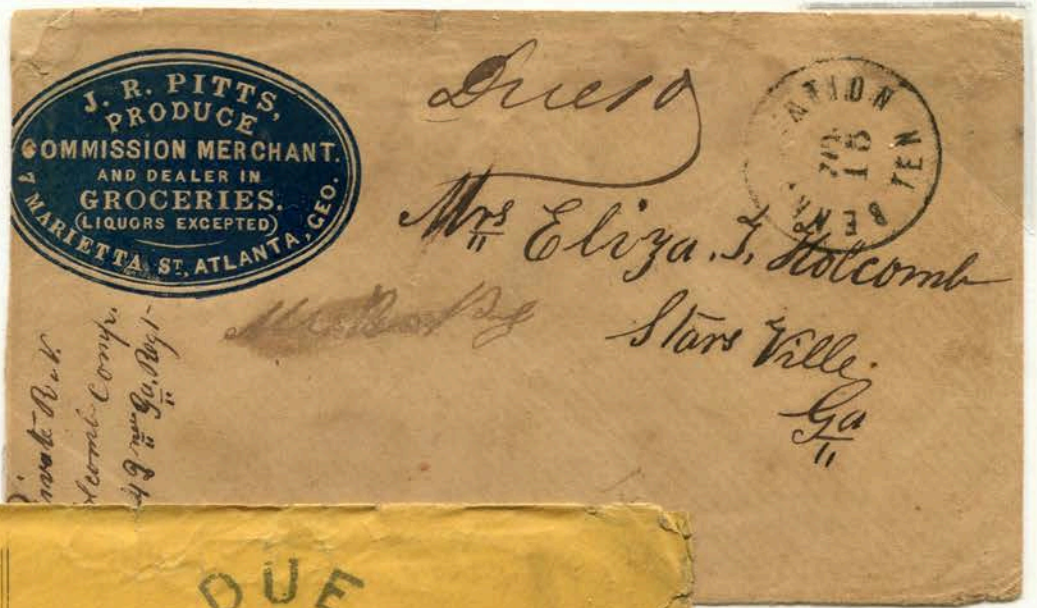 J. R. PITTS,
PRODUCE
COMMISSION MERCHANT.
AND DEALER IN
GROCERIES.
(LIQUORS EXCEPTED)
7 MARIETTA ST, ATLANTA, GEO.
Due 10
ATION TEN
18
Mrs Eliza. F. Holcomb
Stars Ville.
Ga
R. N.
lcomb Comp.
Ga. Regt
DUE